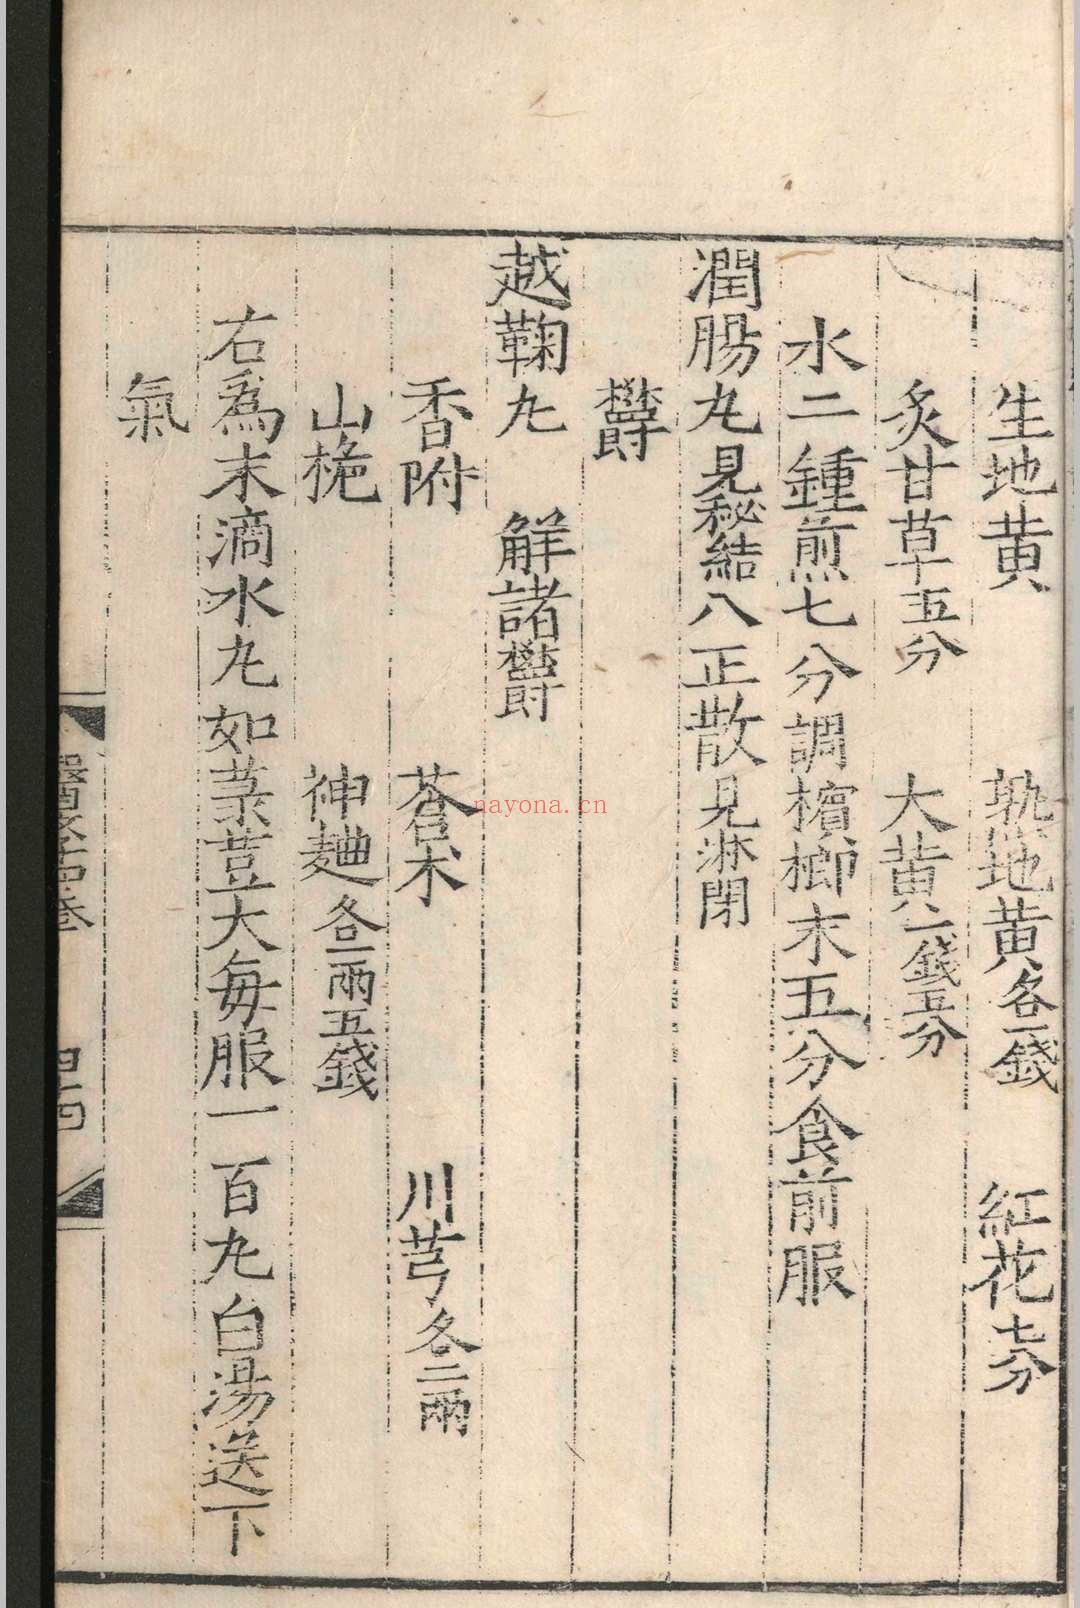 生地黄 熟地黄各一錢 紅花七分
炙甘草五分 大黄一錢五分
水二鍾煎七分調檳榔末五分食前服
潤腸丸見秘結八正散見淋閉
欝
越鞠丸 解諸欝
香附 蒼术 川芎各二兩
山梔 神麯各一兩五錢
右爲末滴水丸如菉荳大每服一百丸白湯送下
氣
nayona.cn